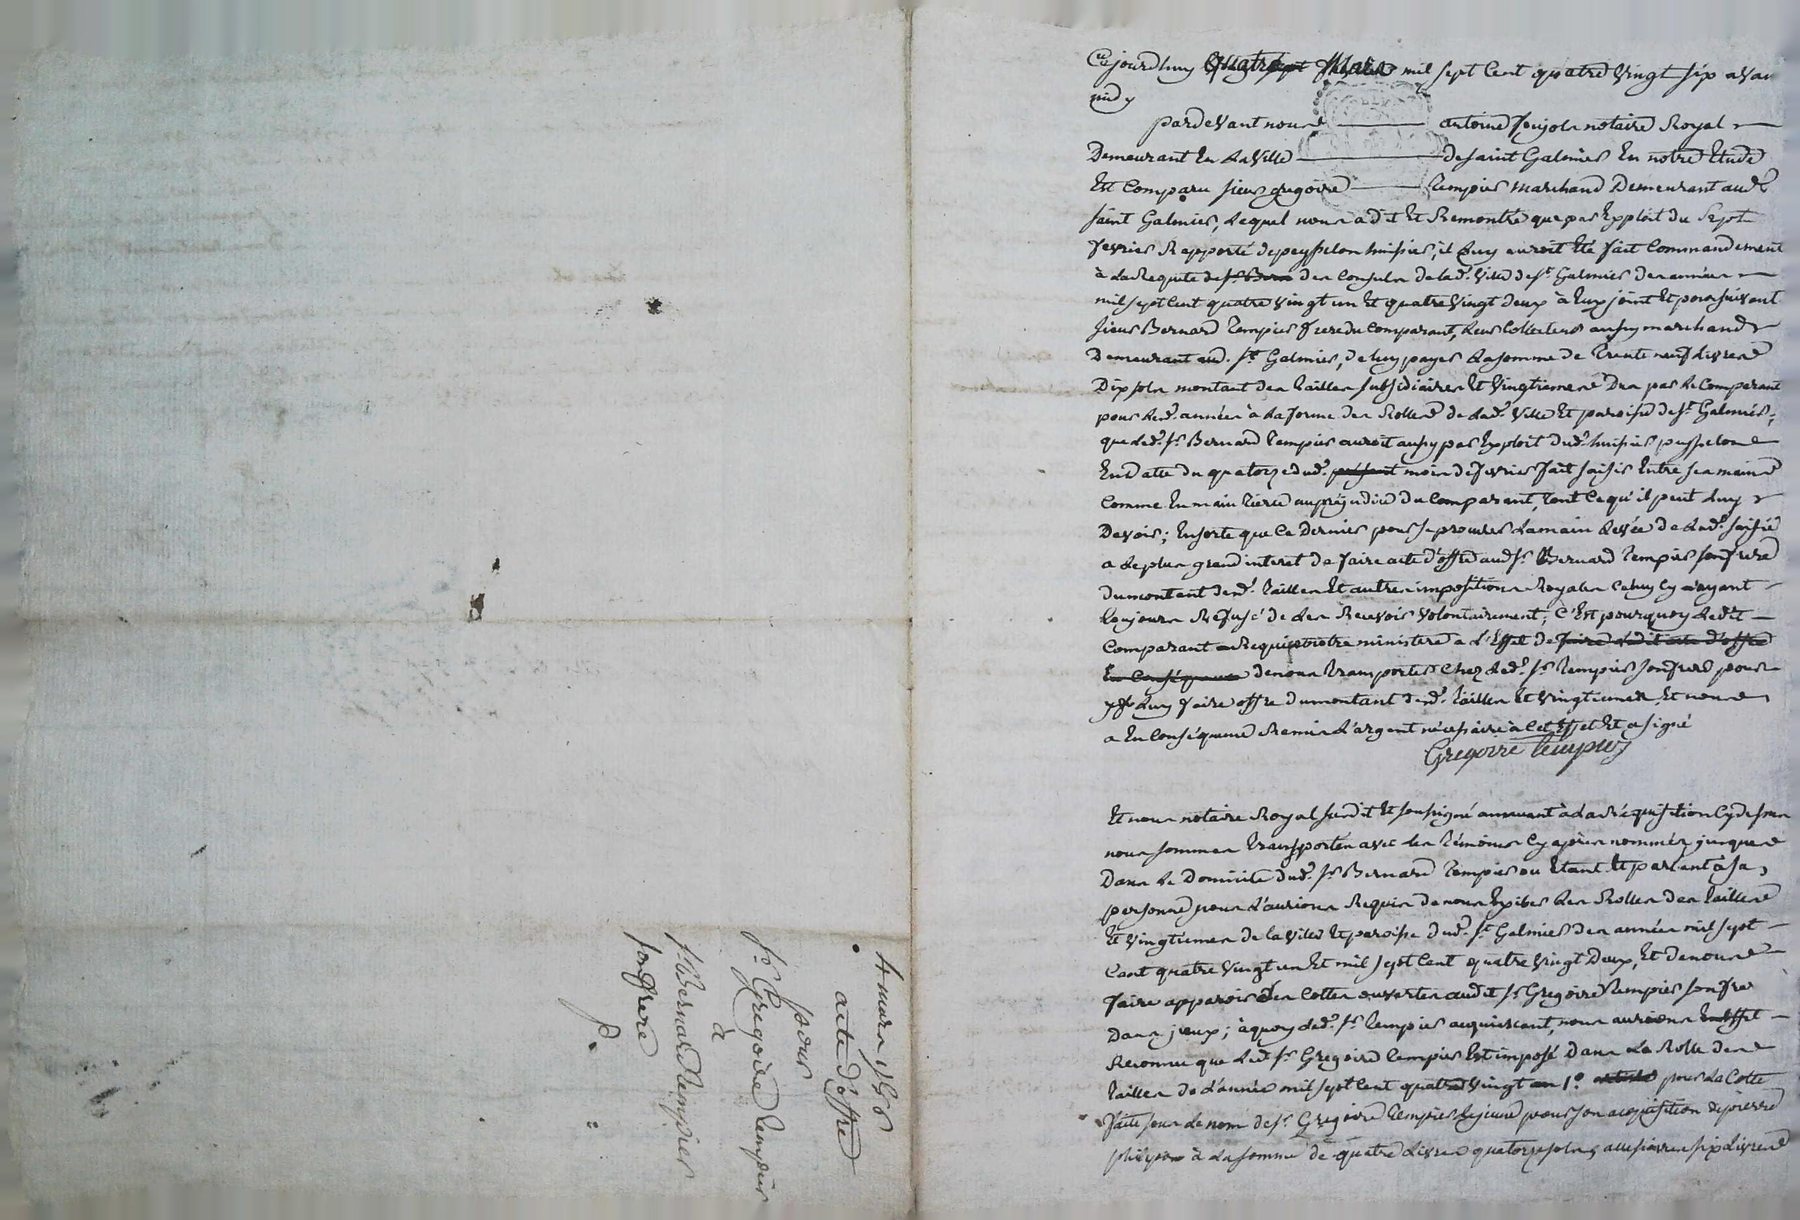 4 mars 1786
acte d'offre
pour
sr. Gregoire Tempier
à
sr. Bernard Tempier
son frere
Cejourdhuy Quatre Mars mil sept Cent quatre vingt six avan
midy
pardevant nous antoine Poujols notaire Royal
Demeurant En La Ville de saint Galmier En notre Etude
Est Comparu sieur gregoire Tempier marchand Demeurant aud.
saint Galmier, Lequel nous a dit Et Remontré que par Exploit du sept
fevrier Rapporté de peysselon huissier, il Luy auroit Eté fait Commandement
à La Requete des Consuls de lad. Ville de st. Galmier des années
mil sept Cent quatre vingt un Et quatre vingt deux à Eux joint Et poursuivant
sieur Bernard Tempier frere du Comparant, Leur Collecteur aussy marchand
Demeurant aud. st. Galmier, de luy payer La somme de Trente neuf Livres
Dix sols montant des Tailles subsidiaires Et vingtiemes Dus par Le Comparant
pour Lesd. années à La forme des Rolles de Lad. Ville Et paroisse de st. Galmier,
que Led. sr. Bernard Tempier auroit aussy par Exploit dud. huissier peysselon
En Datte du quatorze dud. mois de fevrier fait saisir Entre ses mains
Comme En main Tierce au préjudice du Comparant, Tout Ce qu'il peut Luy
Devoir; Ensorte que Ce Dernier pour se procurer La main Levée de Lad. saisie
a Le plus grand interet de faire acte d'offre aud. sr. Bernard Tempier son frere
du montant desd. Tailles Et autres impositions Royales Celuy Cy n'ayant
Toujours Refusé de Les Recevoir Volontairement; C'Est pourquoy Ledit
Comparant a Requis notre ministere à L'Effet de faire ledit acte d'offre
En Conséquence de nous Transporter Chez Led. sr. Tempier son frere pour
Luy faire offre du montant desd. Tailles Et vingtiemes, Et nous
a En Conséquence Remis L'argent nécessaire à Cet Effet Et a signé
Gregoire Tempier
Et nous notaire Royal susdit Et soussigné annuant à La Réquisition Cy dessus
nous sommes Transportés avec Les Témoins Cy après nommés jusques
Dans Le Domicile dud. sr. Bernard Tempier ou Etant Et parlant à sa
personne, nous L'aurions Requis de nous Exiber Les Rolles des Tailles
Et vingtiemes de la Ville Et paroisse dud. st. Galmier des années mil sept
Cent quatre vingt un Et mil sept Cent quatre vingt Deux, Et de nous
faire apparoir des Cottes ouvertes audit sr. Gregoire Tempier son frere
Dans iceux; à quoy Led. sr. Tempier acquiescant, nous aurions En Effet
Reconnu que Led. sr. Gregoire Tempier Est imposé Dans Le Rolle des
Tailles de L'année mil sept Cent quatre vingt un 1° pour La Cotte
faite sous Le nom de sr. Gregoire Tempier Lejeune pour son acquisition de pierre
à La somme de quatre Livres quatorze sols, accessoires six Livres